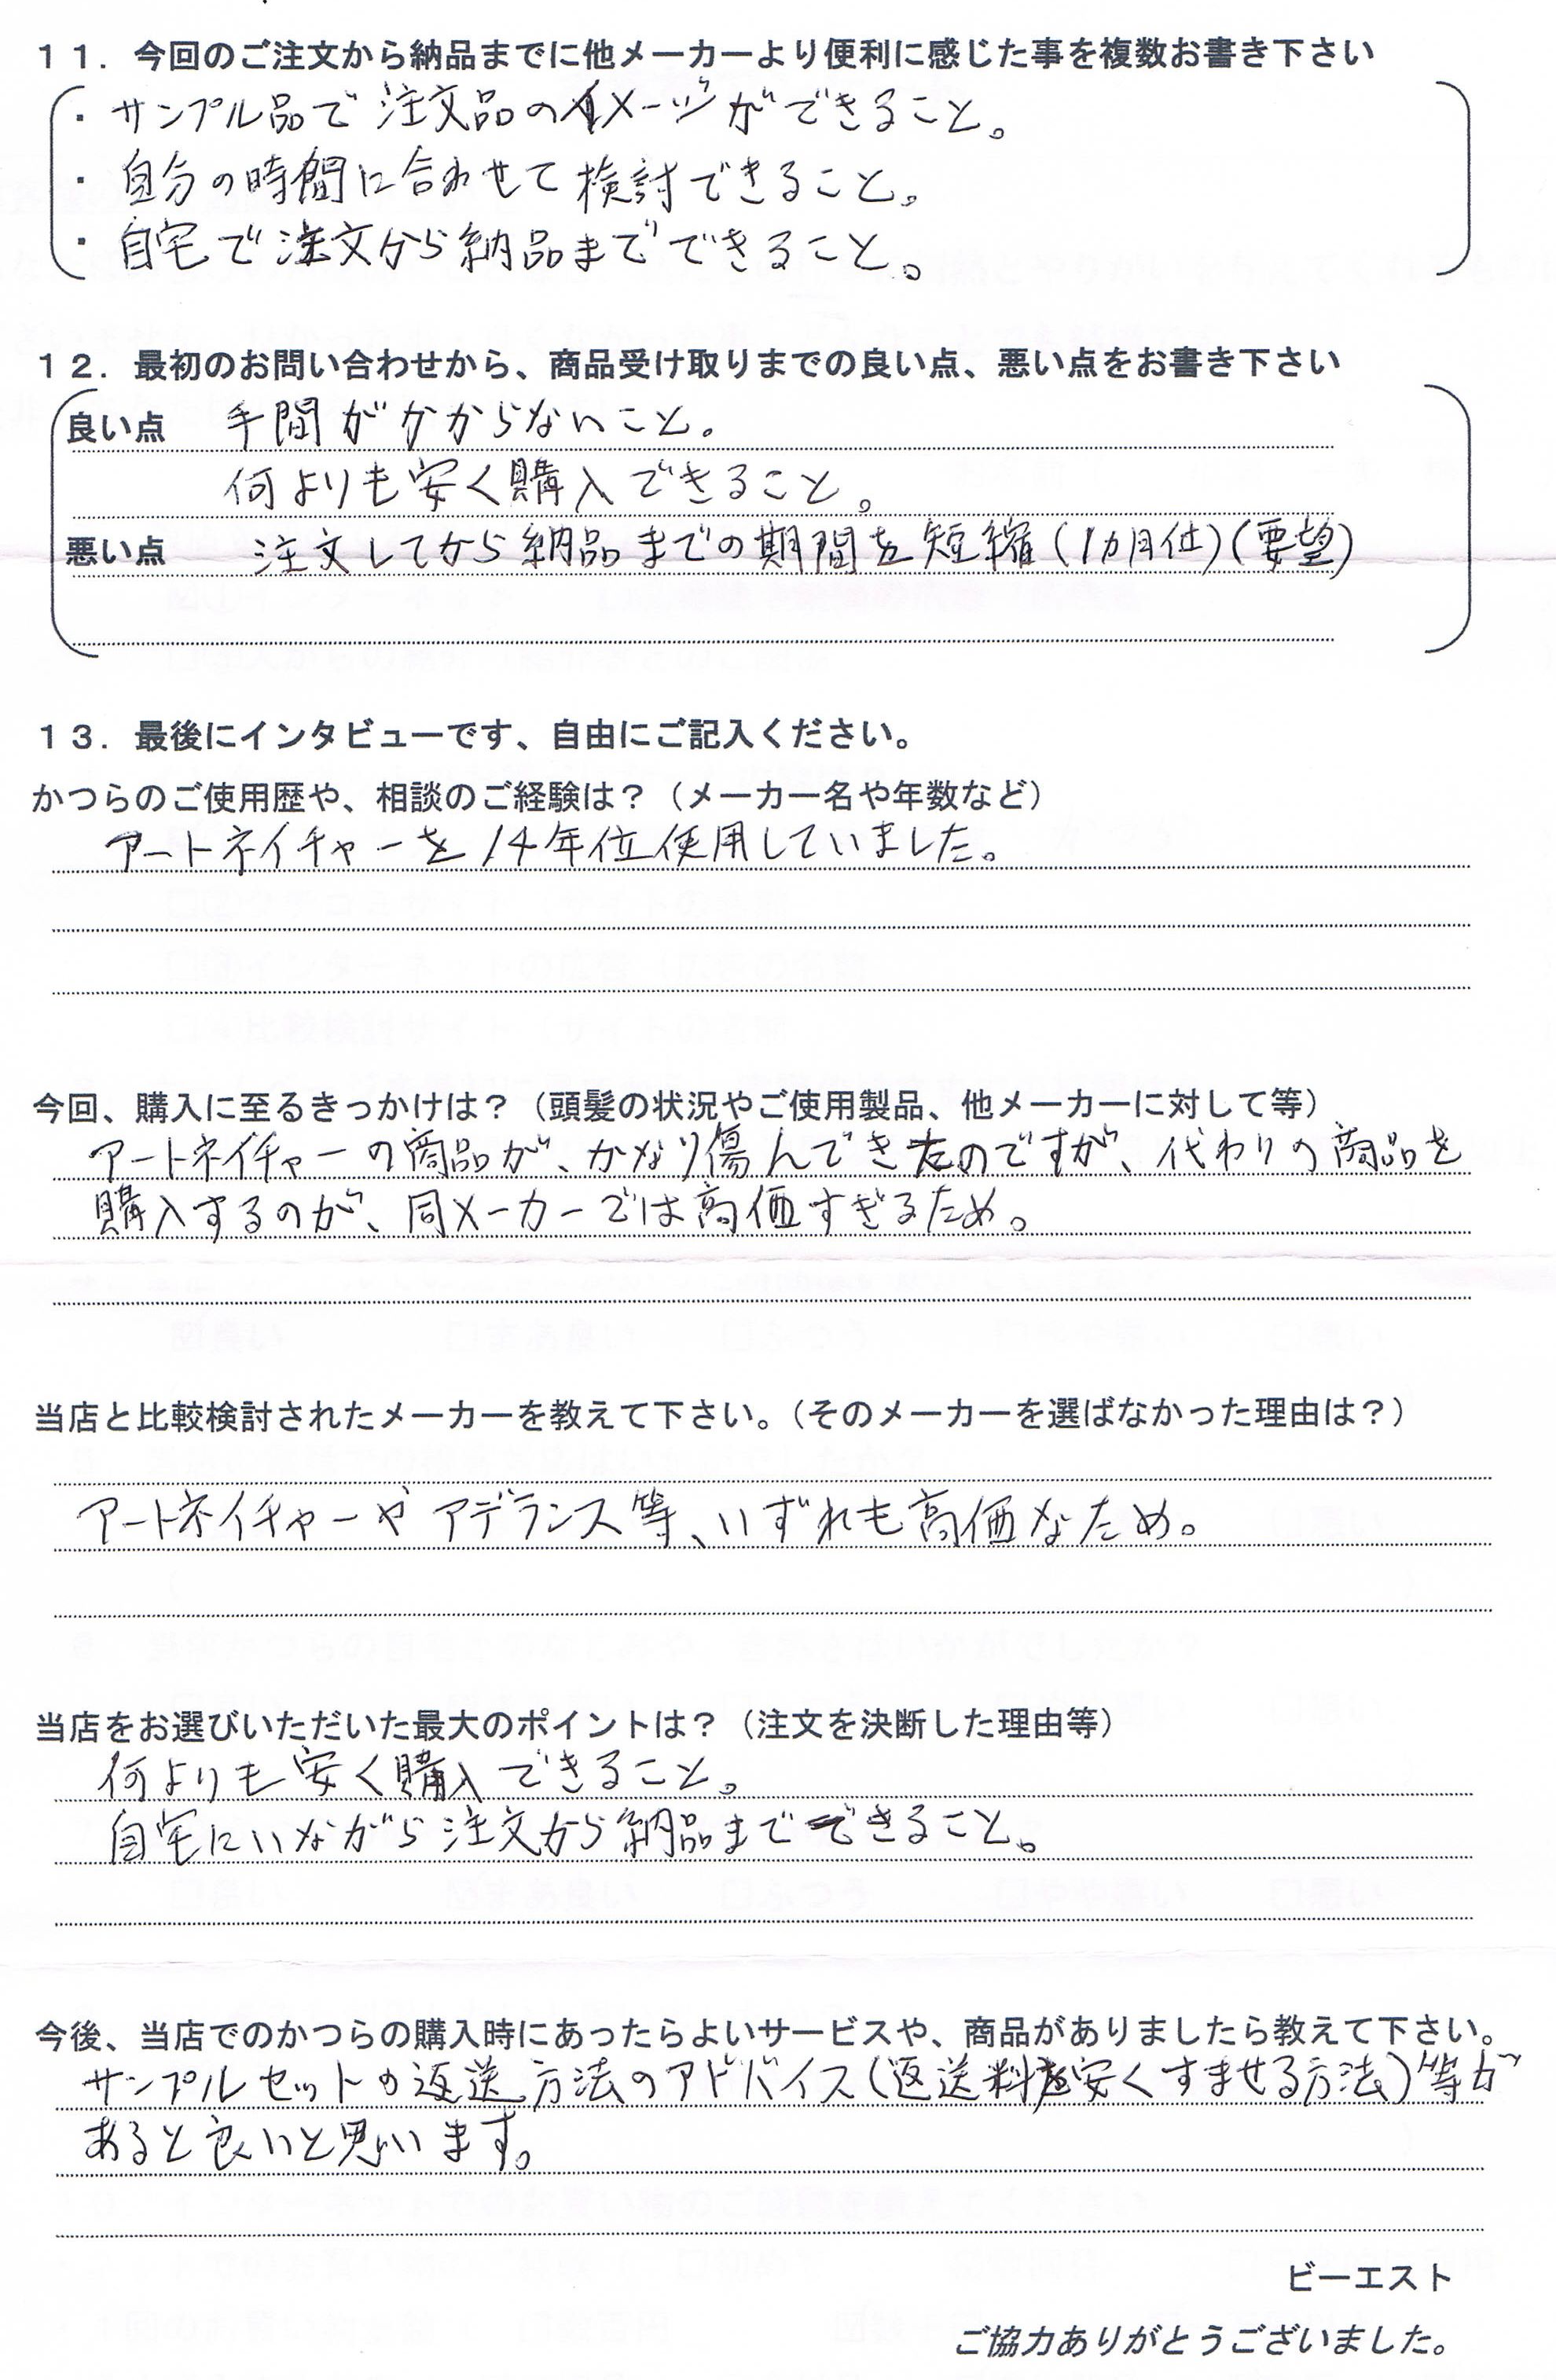 １１．今回のご注文から納品までに他メーカーより便利に感じた事を複数お書き下さい
・サンプル品で注文品のイメージができること。
・自分の時間に合わせて検討できること。
・自宅で注文から納品までできること。
１２．最初のお問い合わせから、商品受け取りまでの良い点、悪い点をお書き下さい
良い点　手間がかからないこと。
何よりも安く購入できること。
悪い点　注文してから納品までの期間を短縮(1カ月位)(要望)
１３．最後にインタビューです、自由にご記入ください。
かつらのご使用歴や、相談のご経験は？（メーカー名や年数など）
アートネイチャーを14年位使用していました。
今回、購入に至るきっかけは？（頭髪の状況やご使用製品、他メーカーに対して等）
アートネイチャーの商品が、かなり傷んできたのですが、代わりの商品を
購入するのが、同メーカーでは高価すぎるため。
当店と比較検討されたメーカーを教えて下さい。（そのメーカーを選ばなかった理由は？）
アートネイチャーやアデランス等、いずれも高価なため。
当店をお選びいただいた最大のポイントは？（注文を決断した理由等）
何よりも安く購入できること。
自宅にいながら注文から納品までできること。
今後、当店でのかつらの購入時にあったらよいサービスや、商品がありましたら教えて下さい。
サンプルセットの返送方法のアドバイス(返送料を安くすませる方法)等が
あると良いと思います。
ビーエスト
ご協力ありがとうございました。